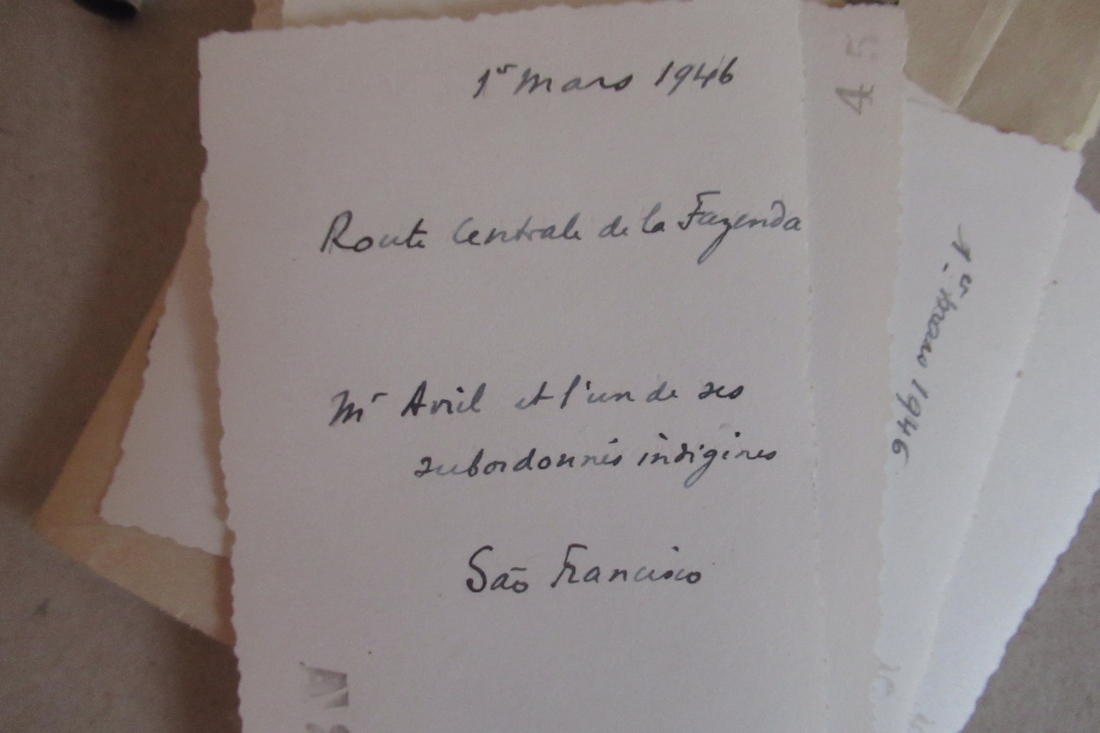 1er Mars 1946
Route Centrale de la Fazenda
Mr Avril et l'un de ses
subordonnés indigènes
São Francisco
45
1er mars 1946